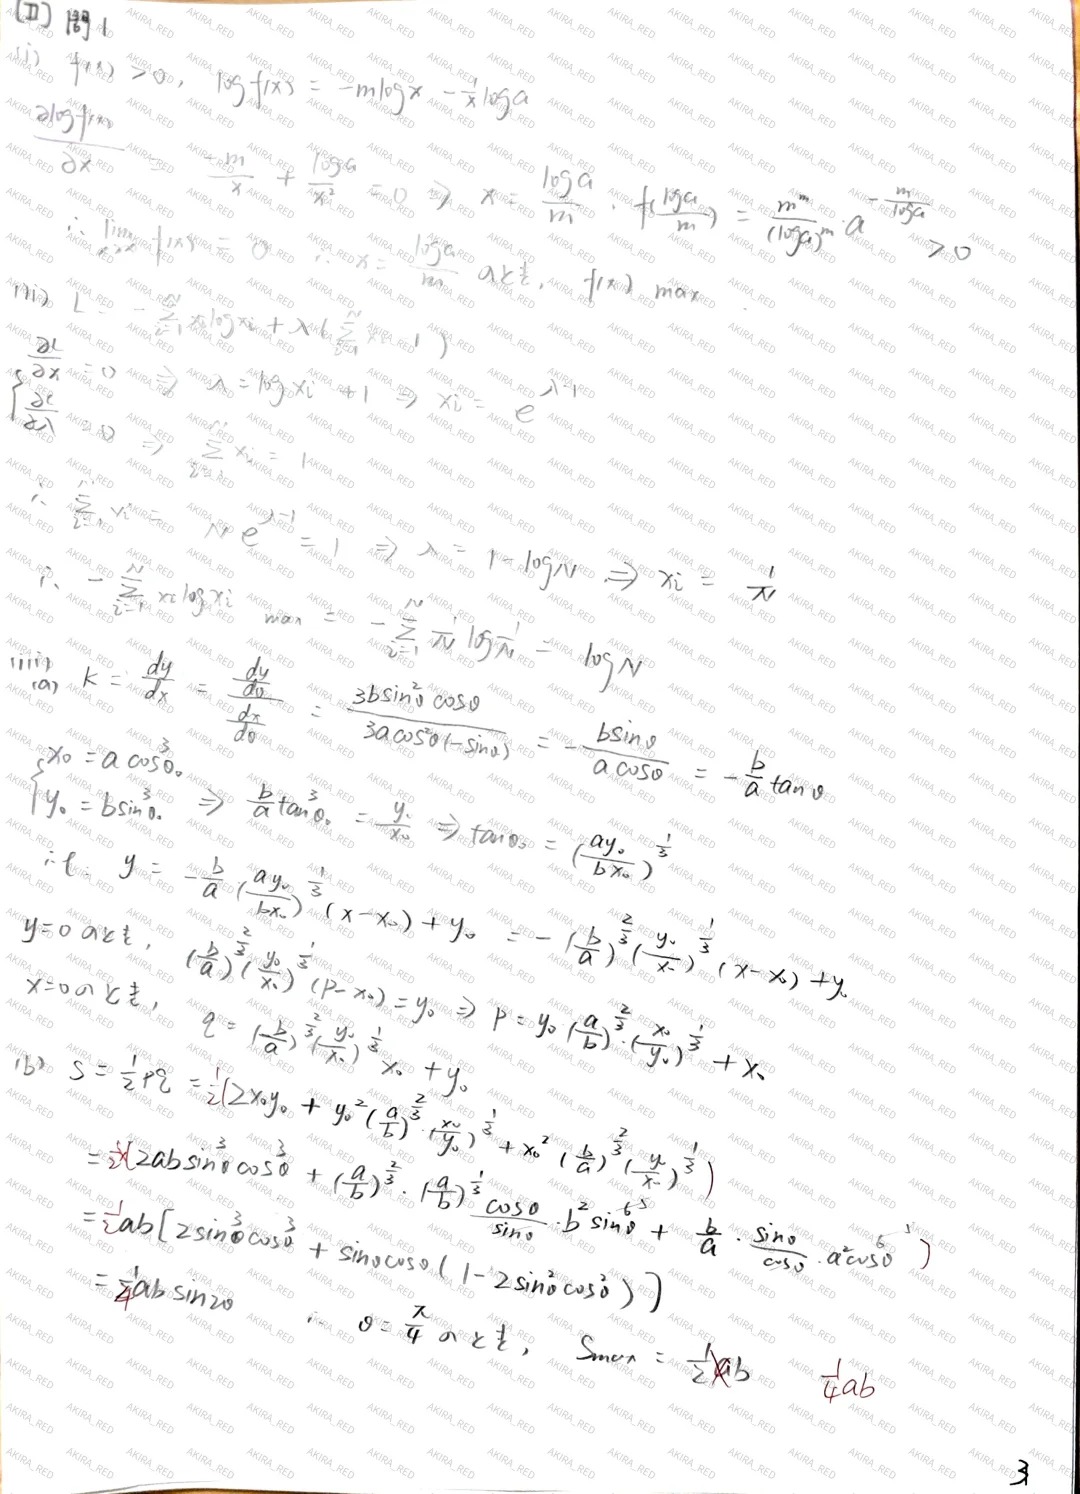 (II) 問1
(i) f(x) > 0, log f(x) = -m log x - 1/x log a
∂log f(x)/∂x = -m/x + log a/x² = 0 ⇒ x = log a/m . f(log a/m) = m^m/(log a)^m · a^(-m/log a) > 0
∴ lim f(x) = 0 ∴ x = log a/m のとき, f(x) max
(ii) L = -Σ_{i=1}^{N} xi log xi + λ(Σ_{i=1}^{N} xi - 1)
{ ∂L/∂x = 0 ⇒ λ = log xi + 1 ⇒ xi = e^(λ-1)
∂L/∂λ = 0 ⇒ Σ_{i=1}^{N} xi = 1
∴ Σ_{i=1}^{N} xi = N e^(λ-1) = 1 ⇒ λ = 1 - log N ⇒ xi = 1/N
∴ -Σ_{i=1}^{N} xi log xi max = -Σ_{i=1}^{N} 1/N log 1/N = log N
(iii)
(a) K = dy/dx = (dy/dθ)/(dx/dθ) = 3b sin²θ cosθ / 3a cos²θ(-sinθ) = - b sinθ / a cosθ = - b/a tanθ
{ x₀ = a cos³θ₀
y₀ = b sin³θ₀ ⇒ b/a tan³θ₀ = y₀/x₀ ⇒ tanθ₀ = (ay₀/bx₀)^(1/3)
∴ l: y = - b/a (ay₀/bx₀)^(1/3) (x - x₀) + y₀ = - (b/a)^(2/3) (y₀/x₀)^(1/3) (x - x₀) + y₀
y=0 のとき, (b/a)^(2/3) (y₀/x₀)^(1/3) (p - x₀) = y₀ ⇒ p = y₀ (a/b)^(2/3) · (x₀/y₀)^(1/3) + x₀
x=0 のとき, q = (b/a)^(2/3) (y₀/x₀)^(1/3) x₀ + y₀
(b) S = 1/2 pq = 1/2 (2x₀y₀ + y₀² (a/b)^(2/3) · (x₀/y₀)^(1/3) + x₀² (b/a)^(2/3) (y₀/x₀)^(1/3))
= 1/2 (2ab sin³θ cos³θ + (a/b)^(2/3) · (a/b)^(1/3) cosθ/sinθ · b² sin⁶θ + b/a · sinθ/cosθ · a² cos⁶θ)
= 1/2 ab [2 sin³θ cos³θ + sinθ cosθ (1 - 2 sin²θ cos²θ)]
= 1/4 ab sin2θ ∴ θ = π/4 のとき, Smax = 1/2 ab 1/4 ab
3
AKIRA_RED